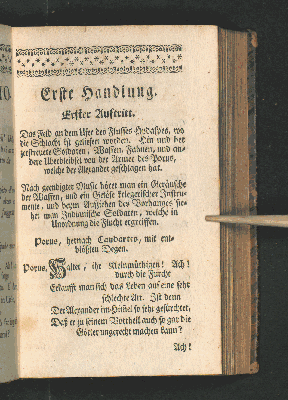 Erste Handlung.
Erster Auftritt.
Das Feld an dem Ufer des Flusses Hydaspes, wo
die Schlacht ist geliefert worden. Hin und her
zerstreuete Soldaten, Waffen, Fahnen, und an-
dere Uberbleibsel von der Armee des Porus,
welche der Alexander geschlagen hat.
Nach geendigter Music höret man ein Geräusche
der Waffen, und ein Getöse kriegerischer Instru-
mente, und beym Aufziehen des Vorhanges sie-
het man Indianische Soldaten, welche in
Unordnung die Flucht ergreiffen.
Porus, hernach Gandartes, mit ent-
blößten Degen.
Porus, Haltet, ihr Kleinmüthigen! Ach!
durch die Furcht
Erkaufft man sich das Leben auf eine sehr
schlechte Art. Ist denn
Der Alexander im Himmel so sehr gefürchtet,
Daß er zu seinem Vortheil auch so gar die
Götter ungerecht machen kann?
Ach!